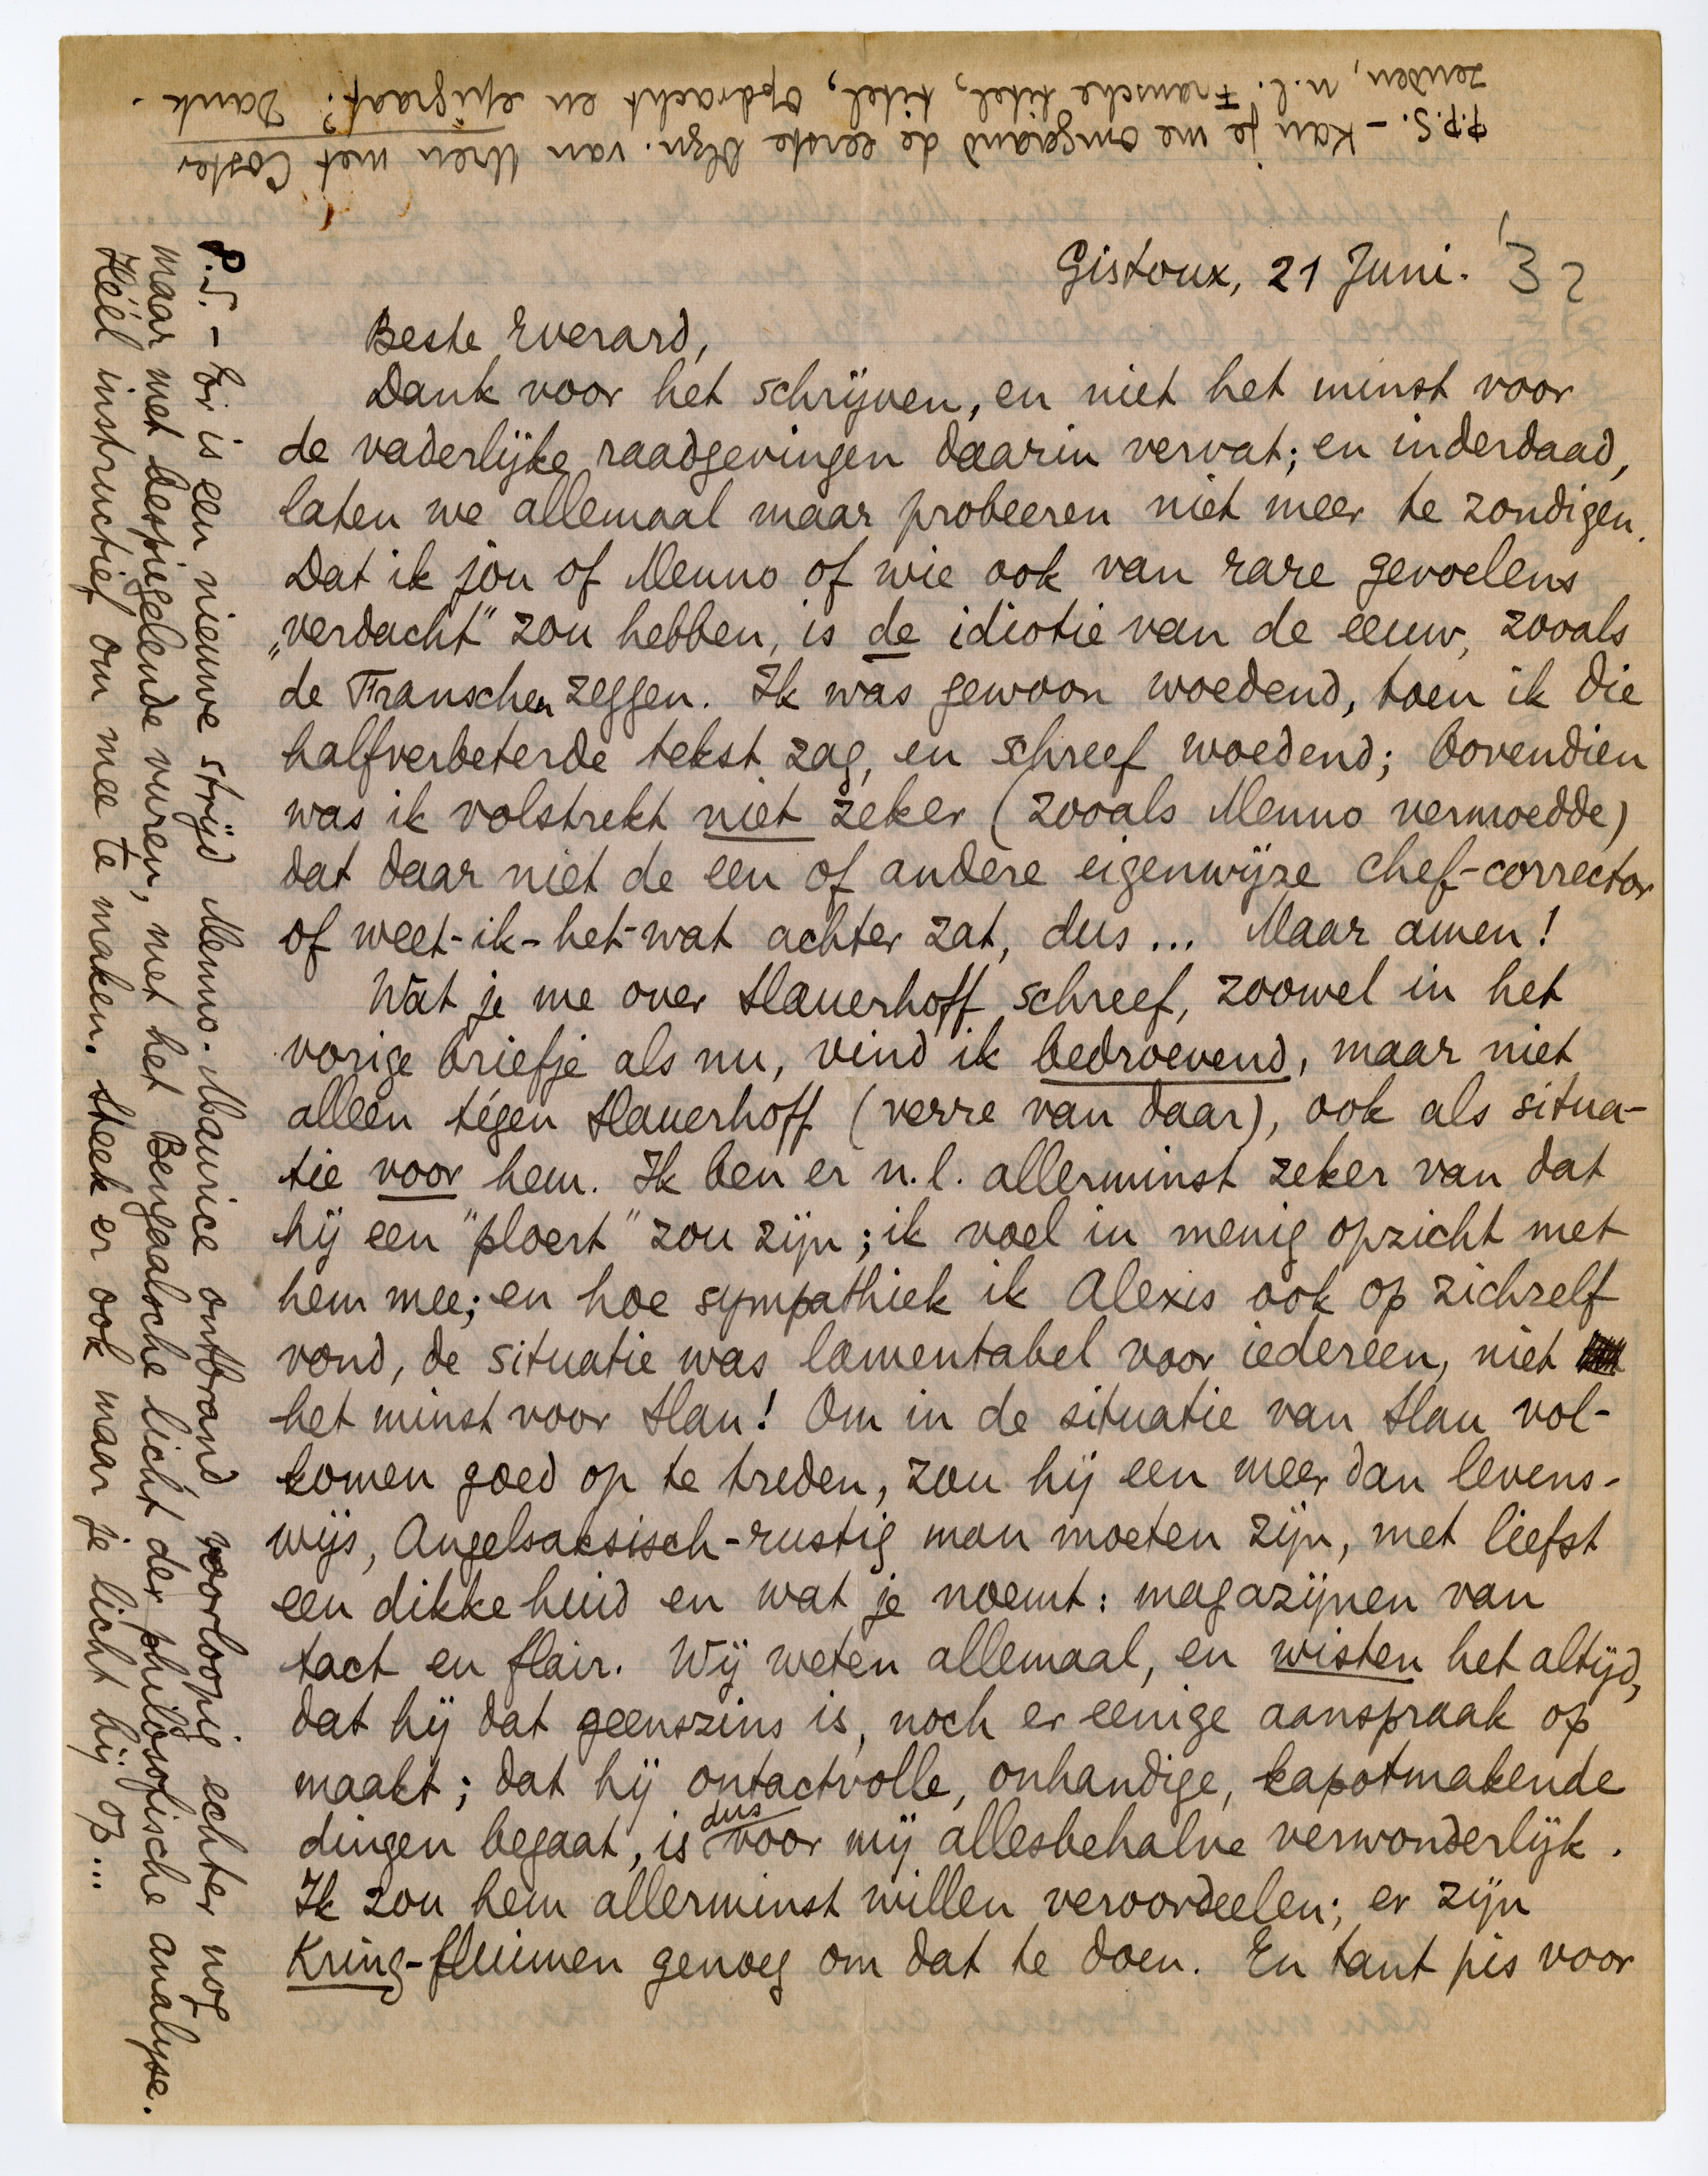 Gistoux, 21 Juni. '32
Beste Everard,
Dank voor het schrijven, en niet het minst voor
de vaderlijke raadgevingen daarin vervat; en inderdaad,
laten we allemaal maar probeeren niet meer te zondigen.
Dat ik jou of Menno of wie ook van rare gevoelens
„verdacht" zou hebben, is de idiotie van de eeuw, zooals
de Franschen zeggen. Ik was gewoon woedend, toen ik die
halfverbeterde tekst zag, en schreef woedend; bovendien
was ik volstrekt niet zeker (zooals Menno vermoedde)
dat daar niet de een of andere eigenwijze chef-corrector
of weet-ik-het-wat achter zat, dus... Maar amen!
Wat je me over Slauerhoff schreef, zoowel in het
vorige briefje als nu, vind ik bedroevend, maar niet
alleen tégen Slauerhoff (verre van daar), ook als situa-
tie voor hem. Ik ben er n.l. allerminst zeker van dat
hij een "ploert" zou zijn; ik voel in menig opzicht met
hem mee; en hoe sympathiek ik Alexis ook op zichzelf
vond, de situatie was lamentabel voor iedereen, niet
het minst voor Slau! Om in de situatie van Slau vol-
komen goed op te treden, zou hij een meer dan levens-
wijs, Angelsaksisch-rustig man moeten zijn, met liefst
een dikke huid en wat je noemt: magazijnen van
tact en flair. Wij weten allemaal, en wisten het altijd,
dat hij dat geenszins is, noch er eenige aanspraak op
maakt; dat hij ontactvolle, onhandige, kapotmakende
dingen begaat, is dus voor mij allesbehalve verwonderlijk.
Ik zou hem allerminst willen veroordeelen; er zijn
Kring-fluimen genoeg om dat te doen. En tant pis voor
P.S. – Er is een nieuwe strijd Menno-Maurice ontbrand, voorloopig echter nog
maar met bespiegelende vuren, met het Bengaalsche licht der philosofische analyse.
Héél instructief om mee te maken. Steek er ook maar je licht bij op...
P.P.S. – Kan je me omgaand de eerste blzn. van Uren met Coster
zenden, n.l. Fransche titel, titel, opdracht en epigraaf? Dank.